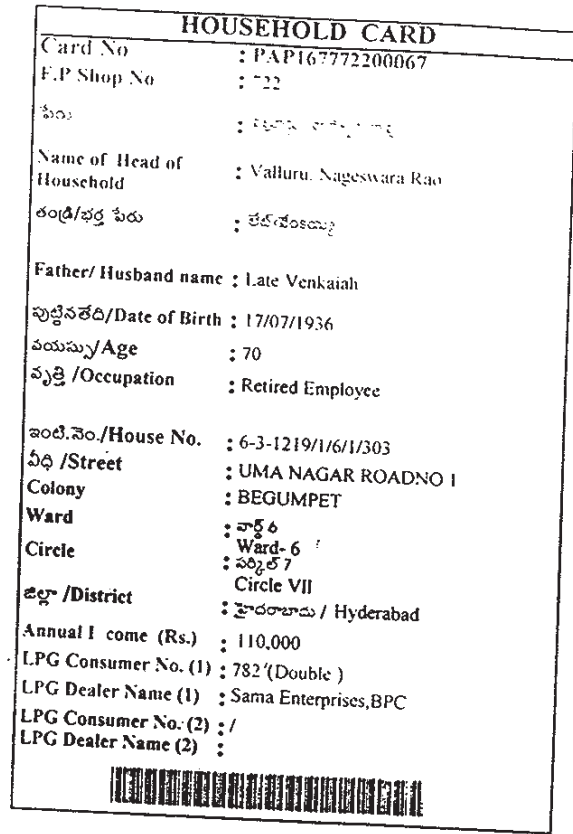 HOUSEHOLD CARD
Card No : PAP167772200067
F.P Shop No : 722
పేరు :
Name of Head of Household : Valluru, Nageswara Rao
తండ్రి/భర్త పేరు : లేట్ వెంకయ్య
Father/ Husband name : Late Venkaiah
పుట్టినతేది/Date of Birth : 17/07/1936
వయస్సు/Age : 70
వృత్తి /Occupation : Retired Employee
ఇంటి.నెం./House No. : 6-3-1219/1/6/1/303
వీధి /Street : UMA NAGAR ROADNO 1
Colony : BEGUMPET
Ward : వార్డ్ 6
Ward- 6
Circle : సర్కిల్ 7
Circle VII
జిల్లా /District : హైదరాబాదు / Hyderabad
Annual I come (Rs.) : 110,000
LPG Consumer No. (1) : 782 (Double )
LPG Dealer Name (1) : Sama Enterprises,BPC
LPG Consumer No. (2) : /
LPG Dealer Name (2) :